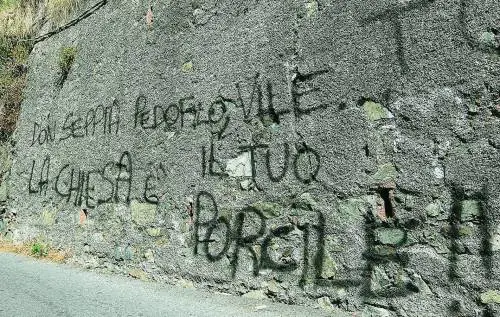 DON SEPPIA PEDOFILO, VILE
"LA CHIESA È" IL TUO
PORCILE